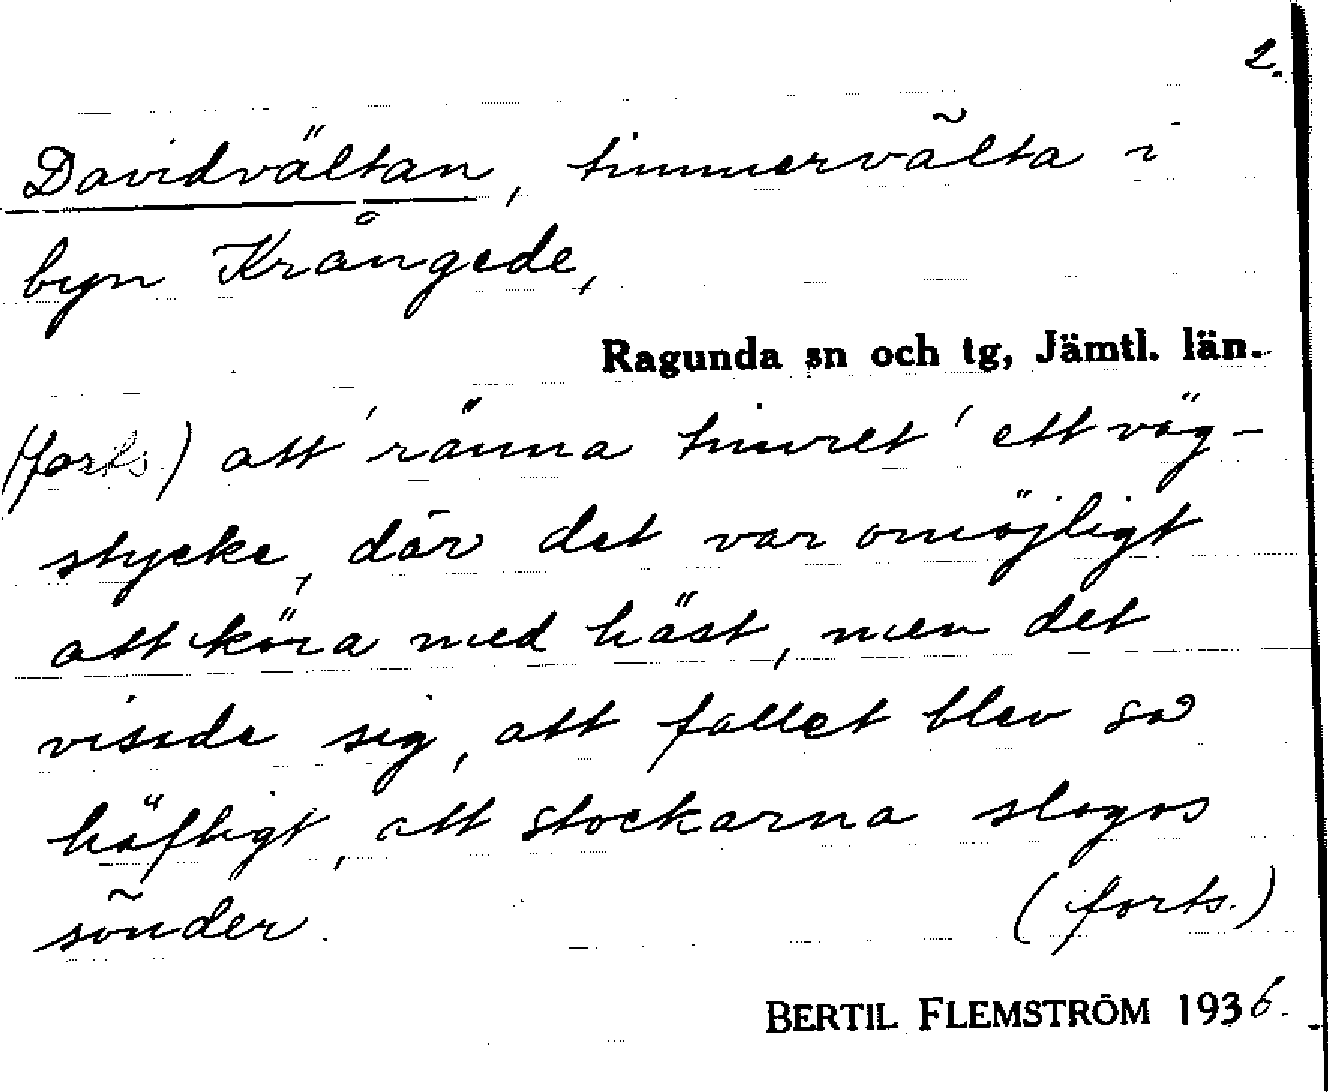 2.
Davidvältan, timmervälta i
byn Krångede,
Ragunda sn och tg, Jämtl. län.
(forts.) att 'ränna timret' ett väg-
stycke, där det var omöjligt
att köra med häst, men det
visade sig, att fallet blev så
häftigt, att stockarna slogos
sönder. (forts.)
BERTIL FLEMSTRÖM 1936.